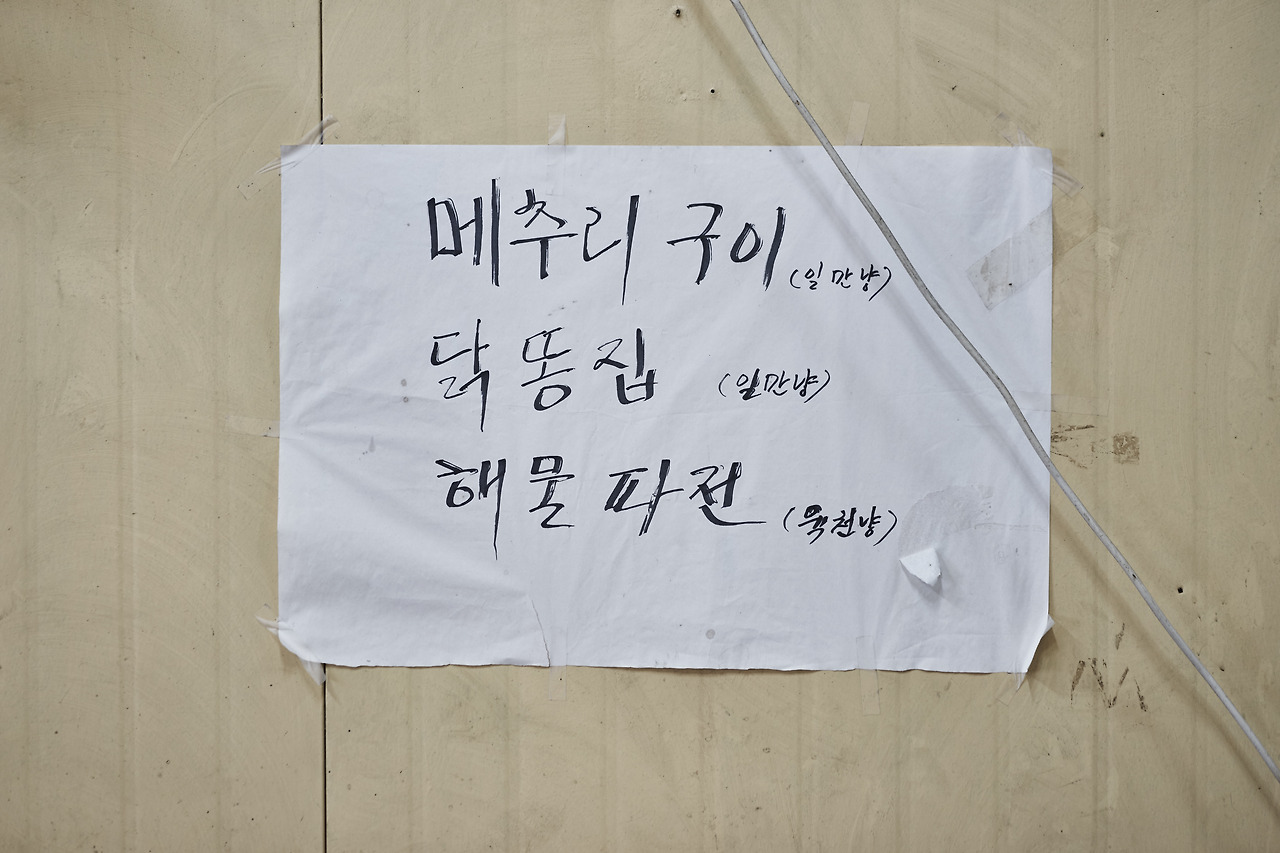 메추리 구이 (일만냥)
닭똥집 (일만냥)
해물 파전 (육천냥)